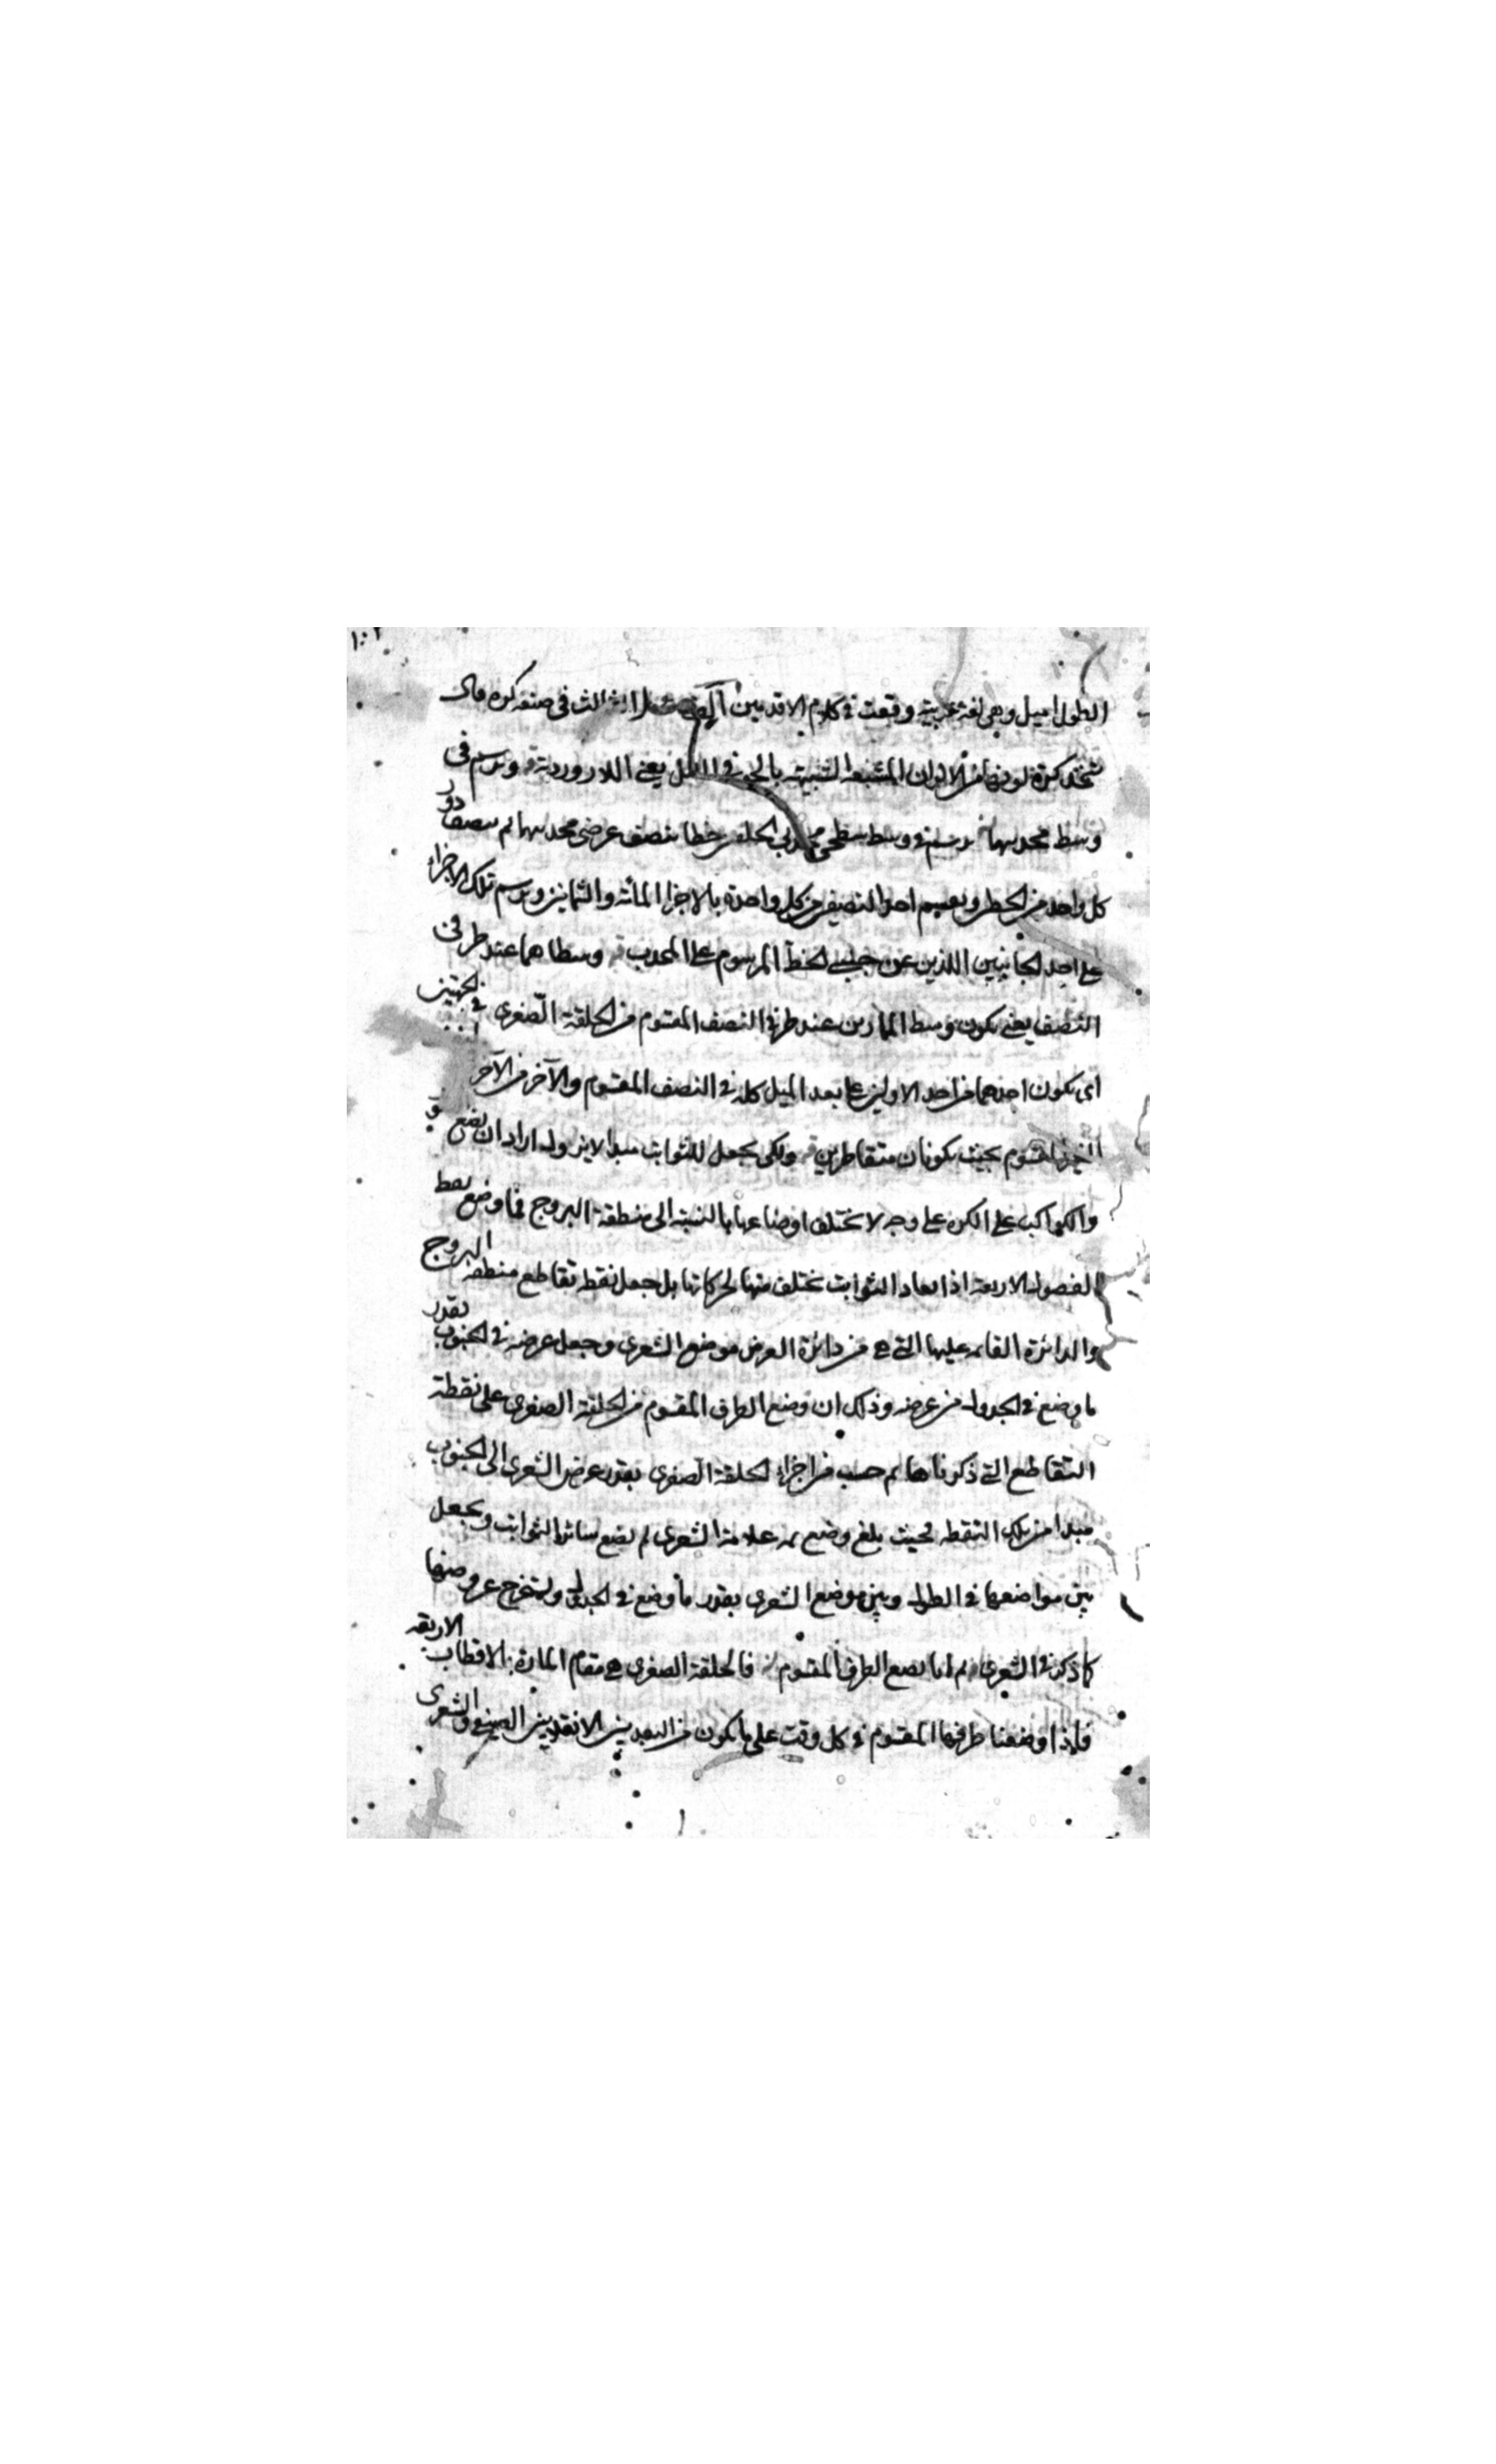 ١٠٢
الطول اميل وهى لغة غريبة وقعت فى كلام الاقدمين الثالث فى صنعة كرة قال
نتخذ كرة لونها من الالوان المشبعة الشبيهة بالجو فى الليل يعنى اللازوردية ونرسم فى
وسط محدبيهما يرسم فى وسط سطحى محدبى الحلقتين خطا ينصف عرضى محدبيهما ثم ينصف دور
كل واحد من الخطين ويقسم احد النصفين من كل واحدة بالاجزا المائة والثمانين ونرسم تلك الاجزاء
على احد الجانبين اللذين عن جنبى الخط المرسوم على المحدب وسطاهما عند طرفى
النصف يعنى يكون وسط المارين عند طرفى النصف المقسوم من الحلقة الصغرى فى الجهتين
اى يكون احدهما من احد الاولين على بعد الميل كله فى النصف المقسوم والآخر من الآخر
المقسوم بحيث يكونان متقاطرين ولكى يجعل للثوابت مبدا لا يزول اراد ان يضع
والكواكب على الكرة على وجه لا يختلف اوضاعها بالنسبة الى منطقة البروج فما وضع نقط
الفصول الاربعة اذ ابعاد الثوابت تختلف منها لحركاتها بل جعل نقط تقاطع منطقة البروج
والدائرة القائمة عليها التى هى من دائرة العرض موضع الشعرى وجعل عرضه فى الجنوب بقدر
ما وضع فى الجدول من عرضه وذلك ان وضع الطرف المقسوم من الحلقة الصغرى على نقطة
التقاطع التى ذكرناها ثم حسب من اجزاء الحلقة الصغرى بقدر عرض الشعرى الى الجنوب
مبدا من تلك النقطة فحيث بلغ وضع ثمه علامة الشعرى ثم يضع سائر الثوابت ويجعل
بين مواضعها فى الطول وبين موضع الشعرى بقدر ما وضع فى الجدول ويستخرج عروضها
كما ذكر فى الشعرى ثم انا نضع الطرف المقسوم فالحلقة الصغرى هى مقام المارة بالاقطاب الاربعة
فاذا وضعنا طرفها المقسوم فى كل وقت على ما يكون من البعد بين الانقلابين الصيفى والشعرى